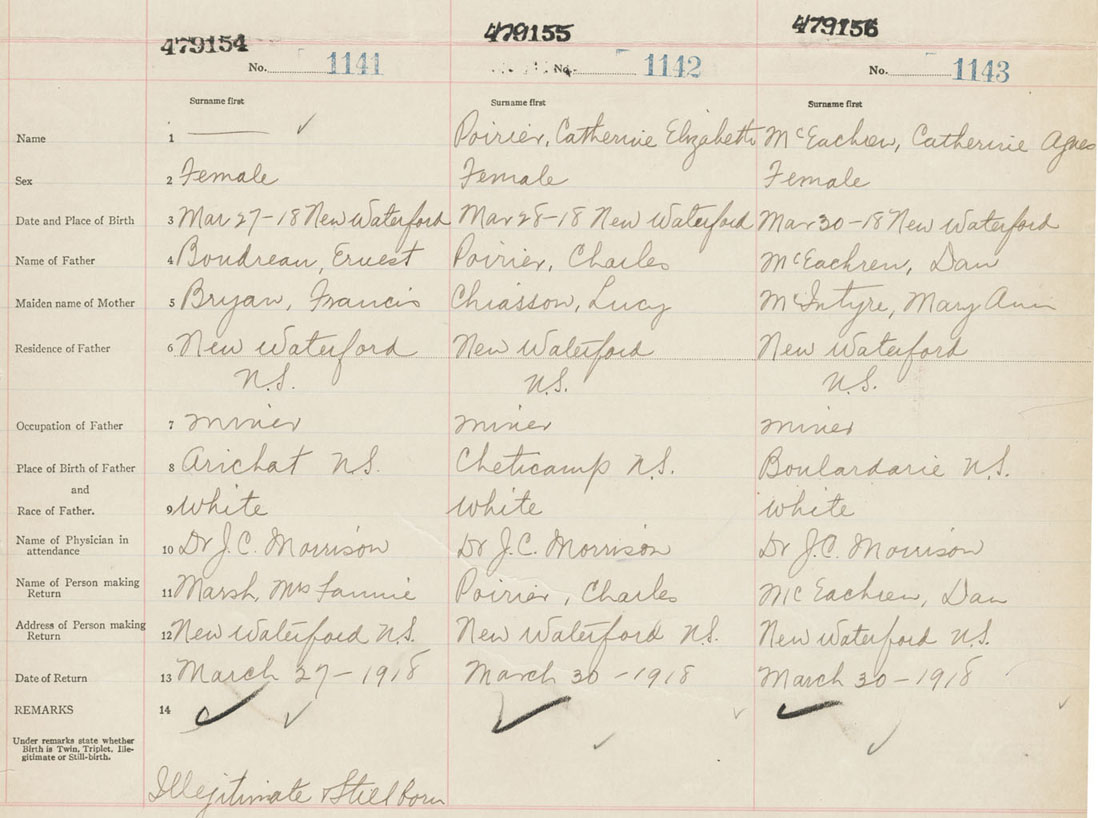 479154 479155 479156
No. 1141 No. 1142 No. 1143
Surname first Surname first Surname first
Name 1 Poirier, Catherine Elizabeth McEachren, Catherine Agnes
Sex 2 Female Female Female
Date and Place of Birth 3 Mar 27-18 New Waterford Mar 28-18 New Waterford Mar 30-18 New Waterford
Name of Father 4 Boudreau, Ernest Poirier, Charles McEachren, Dan
Maiden name of Mother 5 Bryan, Francis Chiasson, Lucy McIntyre, Mary Ann
Residence of Father 6 New Waterford New Waterford New Waterford
N.S. N.S. N.S.
Occupation of Father 7 miner miner miner
Place of Birth of Father 8 Arichat N.S. Cheticamp N.S. Boulardarie N.S.
and
Race of Father. 9 White White White
Name of Physician in
attendance 10 Dr J.C. Morrison Dr J.C. Morrison Dr J.C. Morrison
Name of Person making
Return 11 Marsh, Mrs Fannie Poirier, Charles McEachren, Dan
Address of Person making
Return 12 New Waterford N.S. New Waterford N.S. New Waterford N.S.
Date of Return 13 March 27-1918 March 30-1918 March 30-1918
REMARKS 14
Under remarks state whether
Birth is Twin, Triplet, Ille-
gitimate or Still-birth.
Illegitimate & Still Born